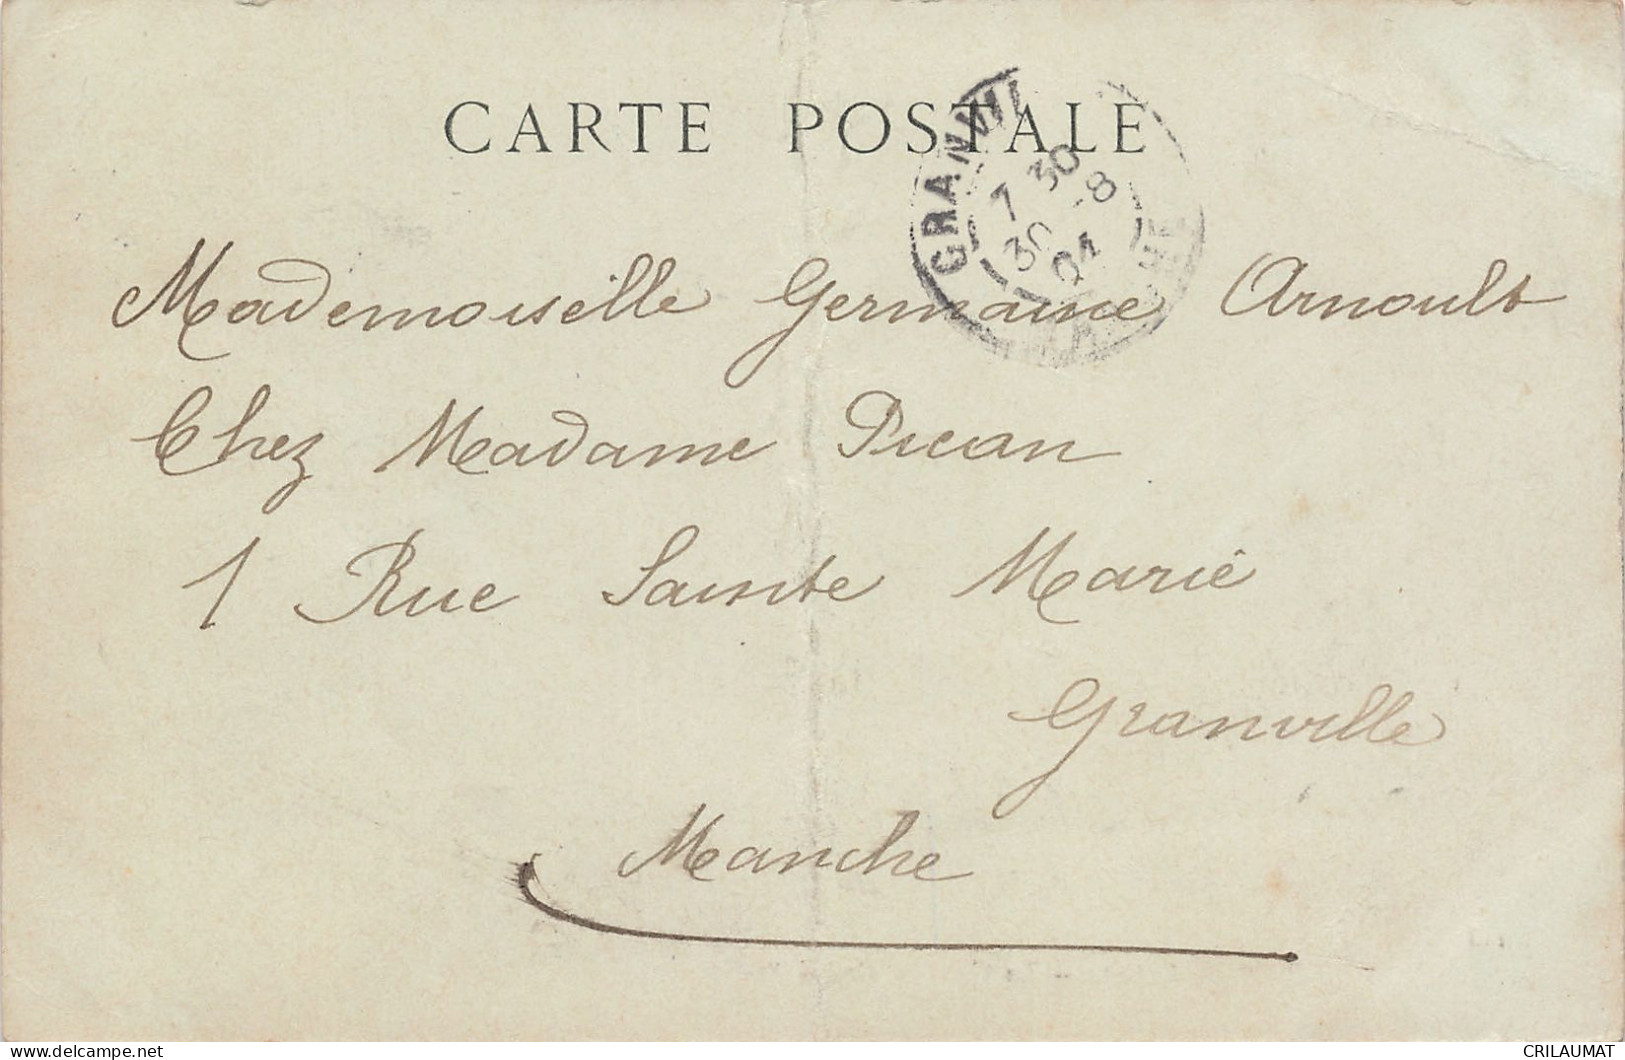 CARTE POSTALE
GRANVIL
7 30
30 -8
04
Mademoiselle Germaine Arnoult
Chez Madame Pican
1 Rue Sainte Marie
Granville
Manche
www.delcampe.net
CRILAUMAT